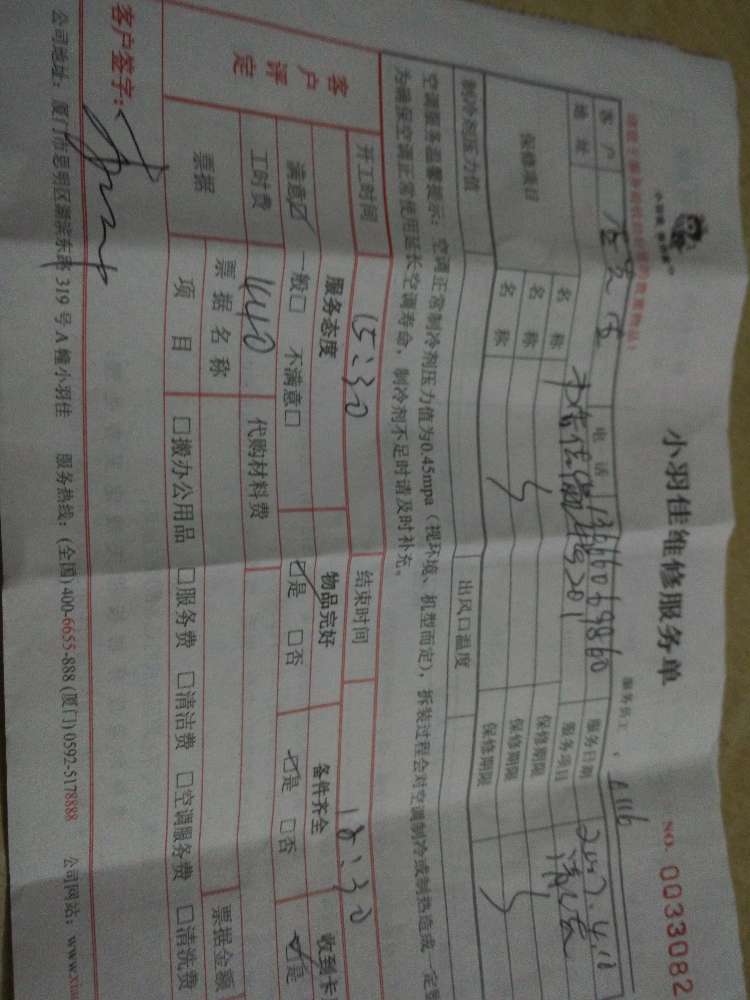 小羽佳维修服务单
NO. 0033082
服务员工
客户 电话 服务日期
地址 201 服务项目 清洁
保修项目 名称 保修期限
名称 保修期限
名称 保修期限
制冷剂压力值 出风口温度
空调服务温馨提示：空调正常制冷剂压力值为0.45mpa（视环境、机型而定），拆装过程会对空调制冷或制热造成一定
为确保空调正常使用延长空调寿命，制冷剂不足时请及时补充。
开工时间 15:30 结束时间 18:30
客户评定 服务态度 物品完好 备件齐全 收到卡
满意☑ 一般□ 不满意□ ☑是 □否 ☑是 □否 ☑是
工时费 440 代购材料费
票据 票据名称 票据金额
项目 □搬办公用品 □服务费 □清洁费 □空调服务费 □清洗费
客户签字：
公司地址：厦门市思明区湖滨东路319号A幢小羽佳 服务热线：(全国)400-6655-888 (厦门)0592-5178888 公司网站：www.xi